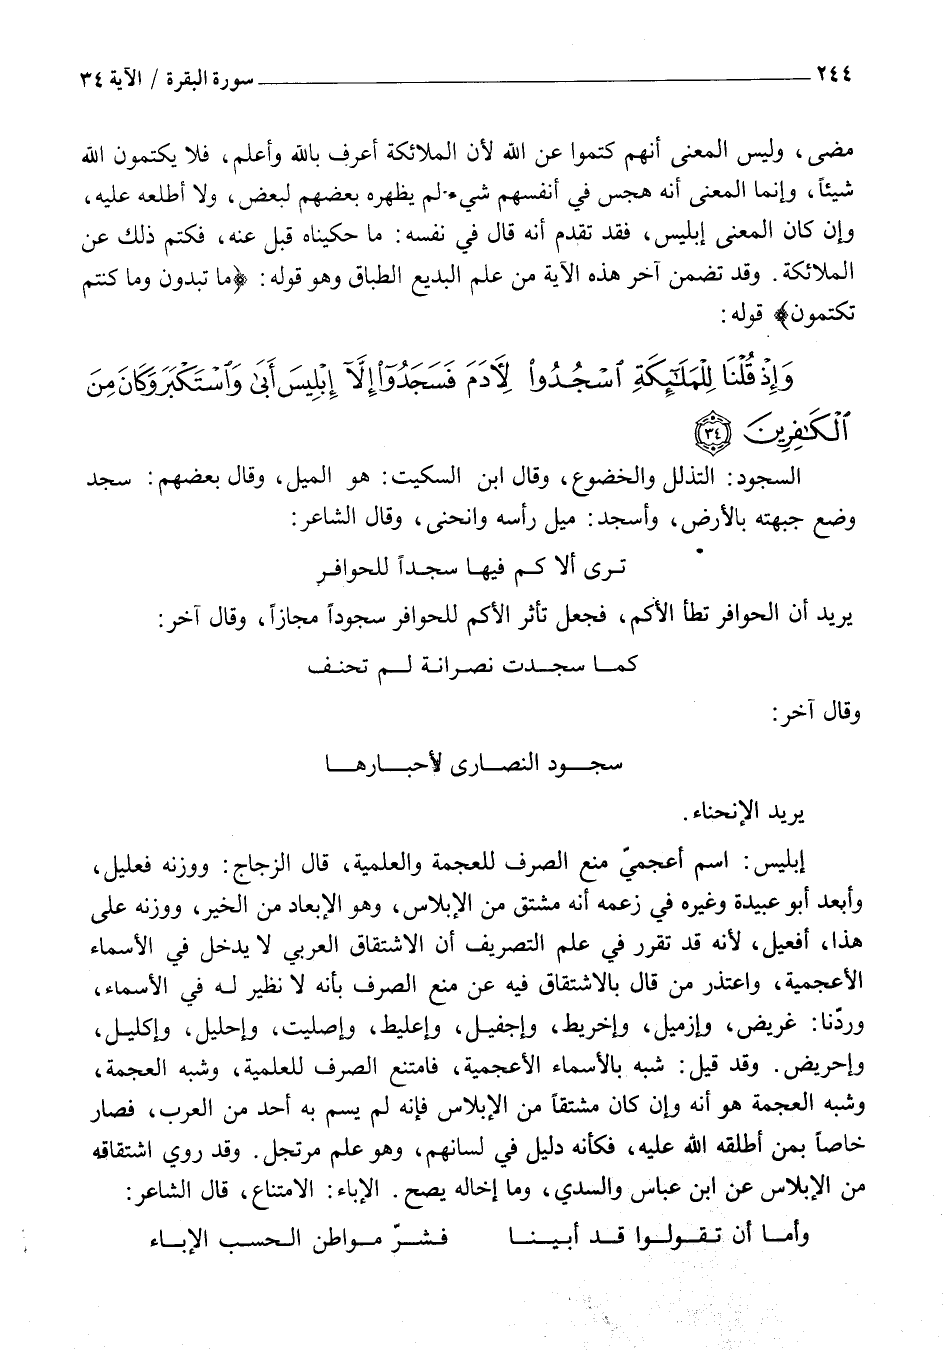 ٢٤٤ سورة البقرة / الآية ٣٤
مضى، وليس المعنى أنهم كتموا عن الله لأن الملائكة أعرف بالله وأعلم، فلا يكتمون الله
شيئاً، وإنما المعنى أنه هجس في أنفسهم شيء لم يظهره بعضهم لبعض، ولا أطلعه عليه،
وإن كان المعنى إبليس، فقد تقدم أنه قال في نفسه: ما حكيناه قبل عنه، فكتم ذلك عن
الملائكة. وقد تضمن آخر هذه الآية من علم البديع الطباق وهو قوله: ﴿ما تبدون وما كنتم
تكتمون﴾ قوله:
وَإِذْ قُلْنَا لِلْمَلَٰٓئِكَةِ ٱسْجُدُوا۟ لِـَٔادَمَ فَسَجَدُوٓا۟ إِلَّآ إِبْلِيسَ أَبَىٰ وَٱسْتَكْبَرَ وَكَانَ مِنَ
ٱلْكَٰفِرِينَ ﴿٣٤﴾
السجود: التذلل والخضوع، وقال ابن السكيت: هو الميل، وقال بعضهم: سجد
وضع جبهته بالأرض، وأسجد: ميل رأسه وانحنى، وقال الشاعر:
ترى ألا كم فيها سجداً للحوافر
يريد أن الحوافر تطأ الأكم، فجعل تأثر الأكم للحوافر سجوداً مجازاً، وقال آخر:
كما سجدت نصرانة لم تحنف
وقال آخر:
سجود النصارى لأحبارها
يريد الإنحناء.
إبليس: اسم أعجميّ منع الصرف للعجمة والعلمية، قال الزجاج: ووزنه فعليل،
وأبعد أبو عبيدة وغيره في زعمه أنه مشتق من الإبلاس، وهو الإبعاد من الخير، ووزنه على
هذا، أفعيل، لأنه قد تقرر في علم التصريف أن الاشتقاق العربي لا يدخل في الأسماء
الأعجمية، واعتذر من قال بالاشتقاق فيه عن منع الصرف بأنه لا نظير له في الأسماء،
وردّنا: غريض، وإزميل، وإخريط، وإجفيل، وإعليط، وإصليت، وإحليل، وإكليل،
وإحريض. وقد قيل: شبه بالأسماء الأعجمية، فامتنع الصرف للعلمية، وشبه العجمة،
وشبه العجمة هو أنه وإن كان مشتقاً من الإبلاس فإنه لم يسم به أحد من العرب، فصار
خاصاً بمن أطلقه الله عليه، فكأنه دليل في لسانهم، وهو علم مرتجل. وقد روي اشتقاقه
من الإبلاس عن ابن عباس والسدي، وما إخاله يصح. الإباء: الامتناع، قال الشاعر:
وأما أن تقولوا قد أبينا فشرّ مواطن الحسب الإباء